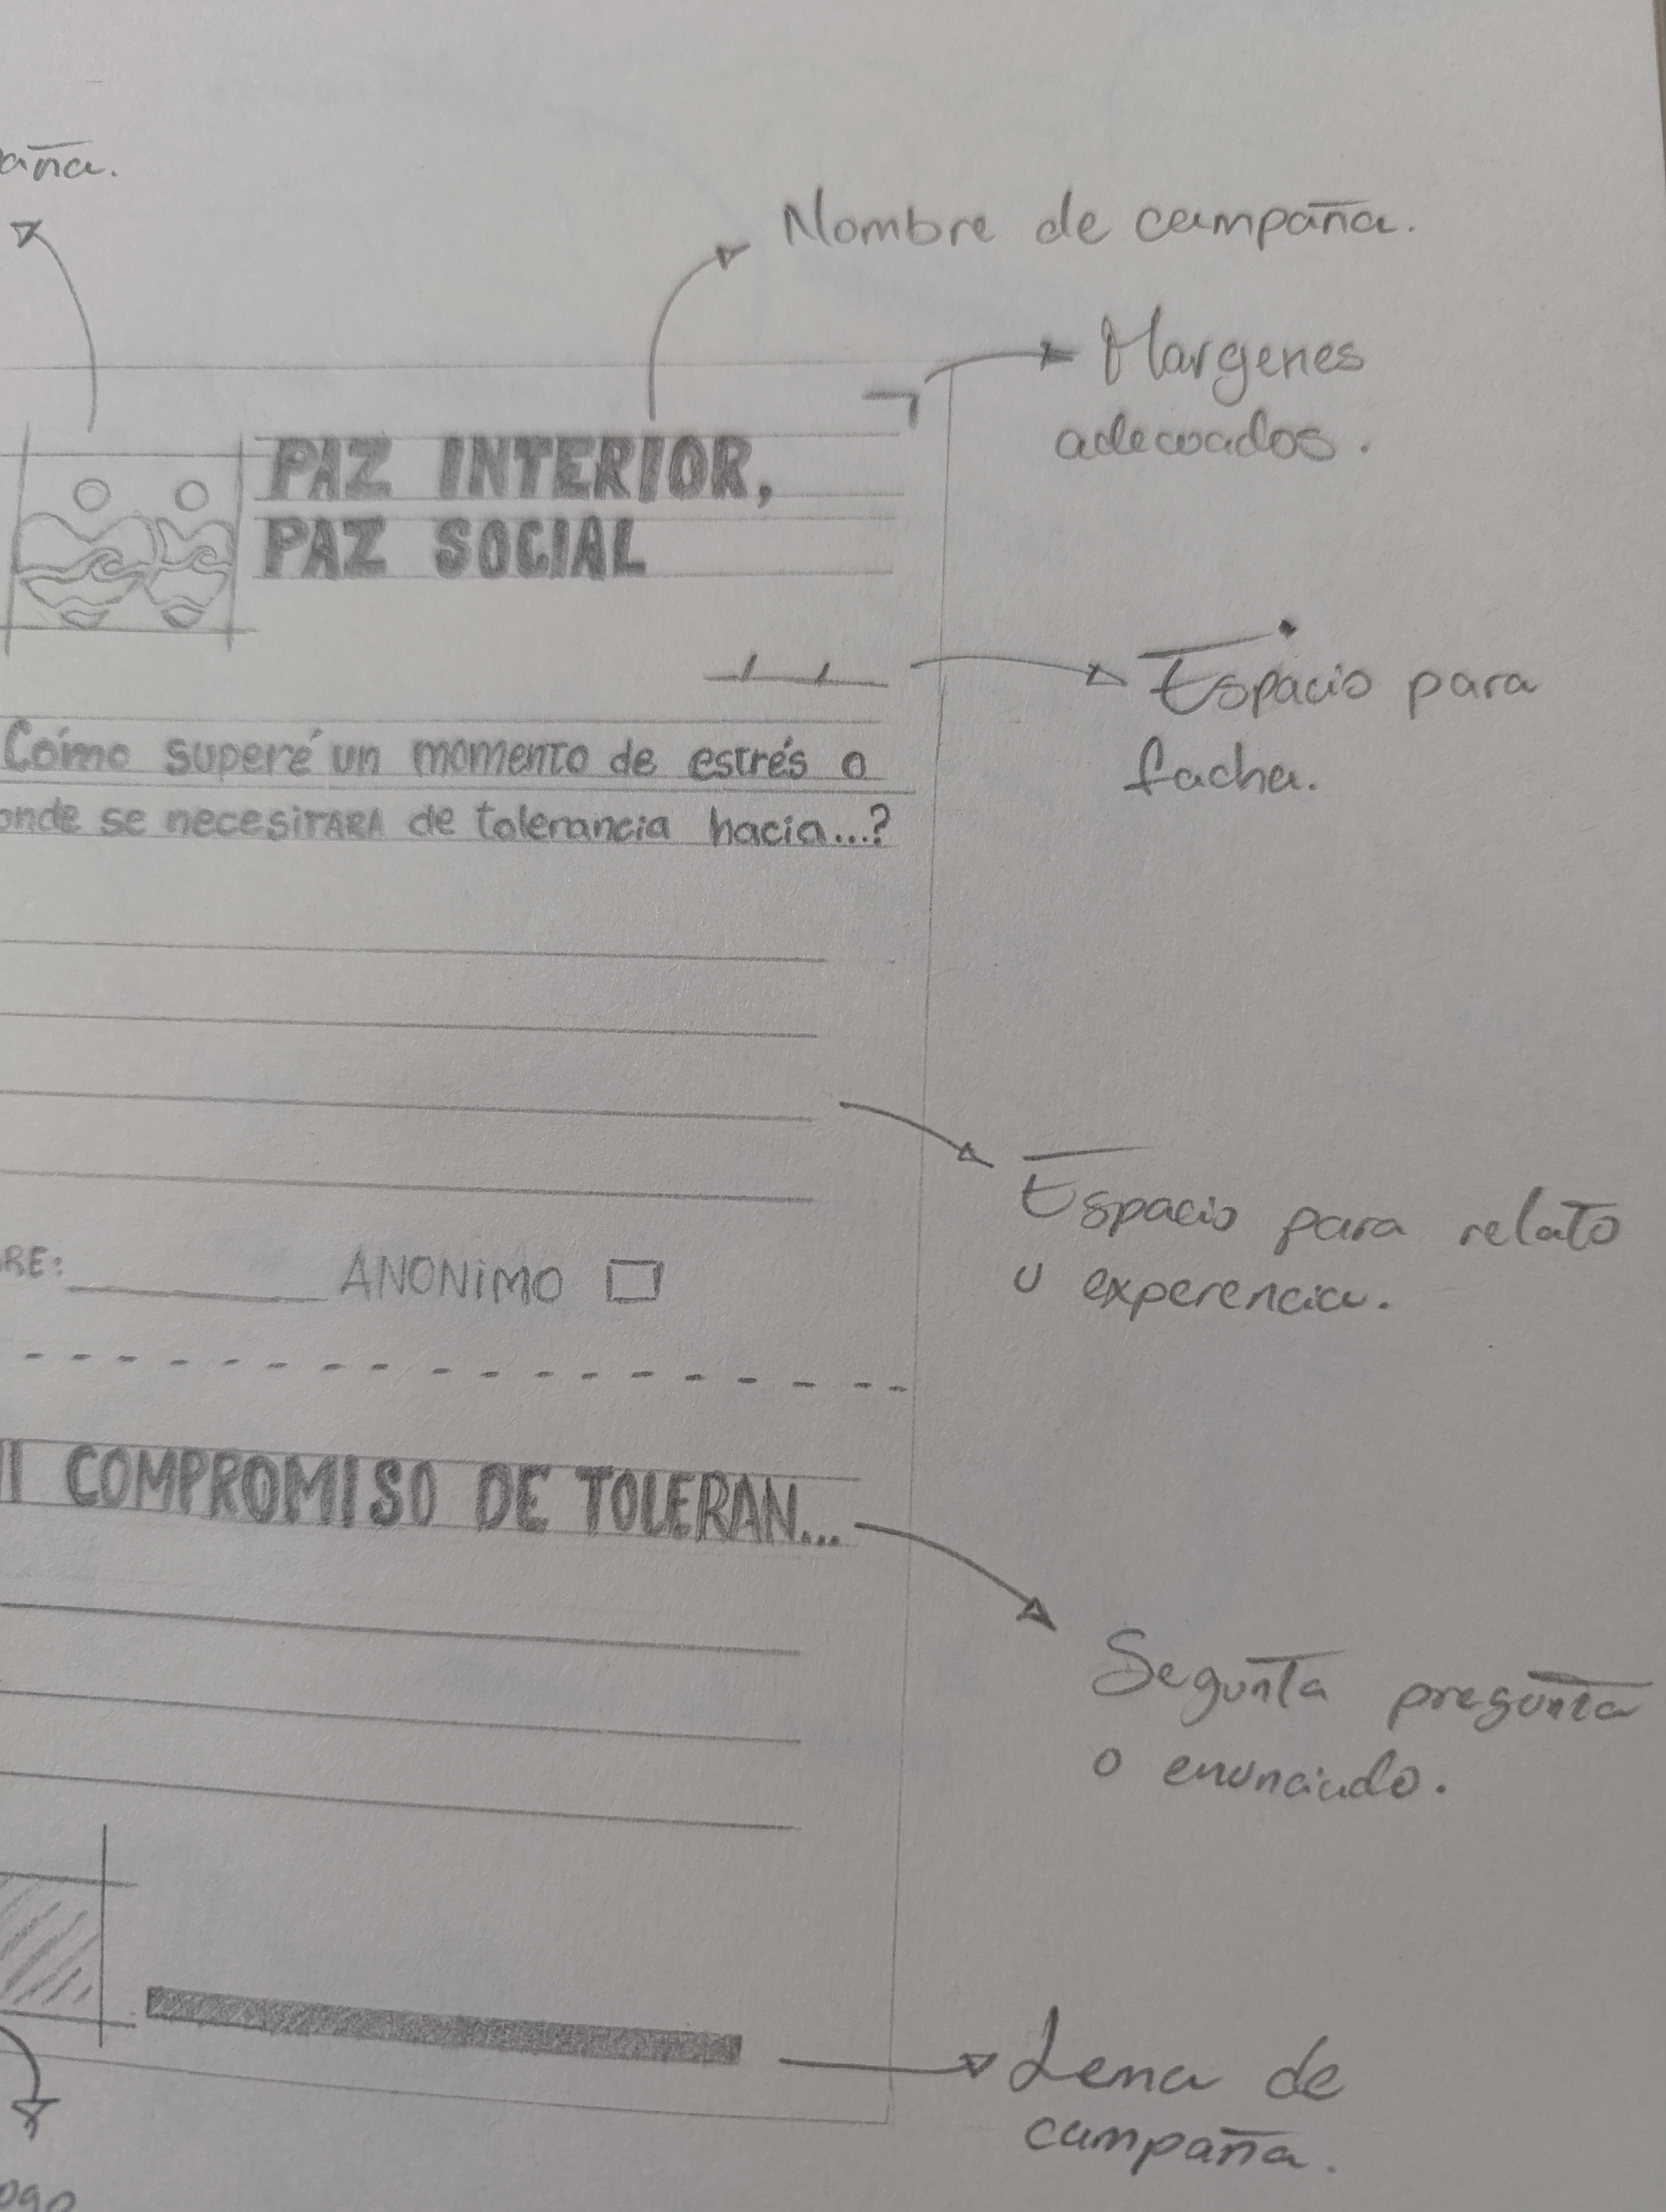 aña.
Nombre de campaña.
Margenes
adecuados.
PAZ INTERIOR,
PAZ SOCIAL
Espacio para
facha.
Cómo superé un momento de estrés o
onde se necesitARA de tolerancia hacia...?
Espacio para relato
u experencia.
RE: ANONiMO
I COMPROMISO DE TOLERAN...
Segunta pregunta
o enunciado.
Lema de
campaña.
ogo